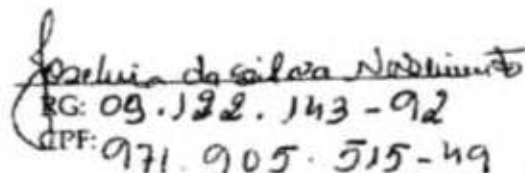 Joselina da Silva Nascimento
RG: 09.122.143-92
CPF: 971.905.515-49